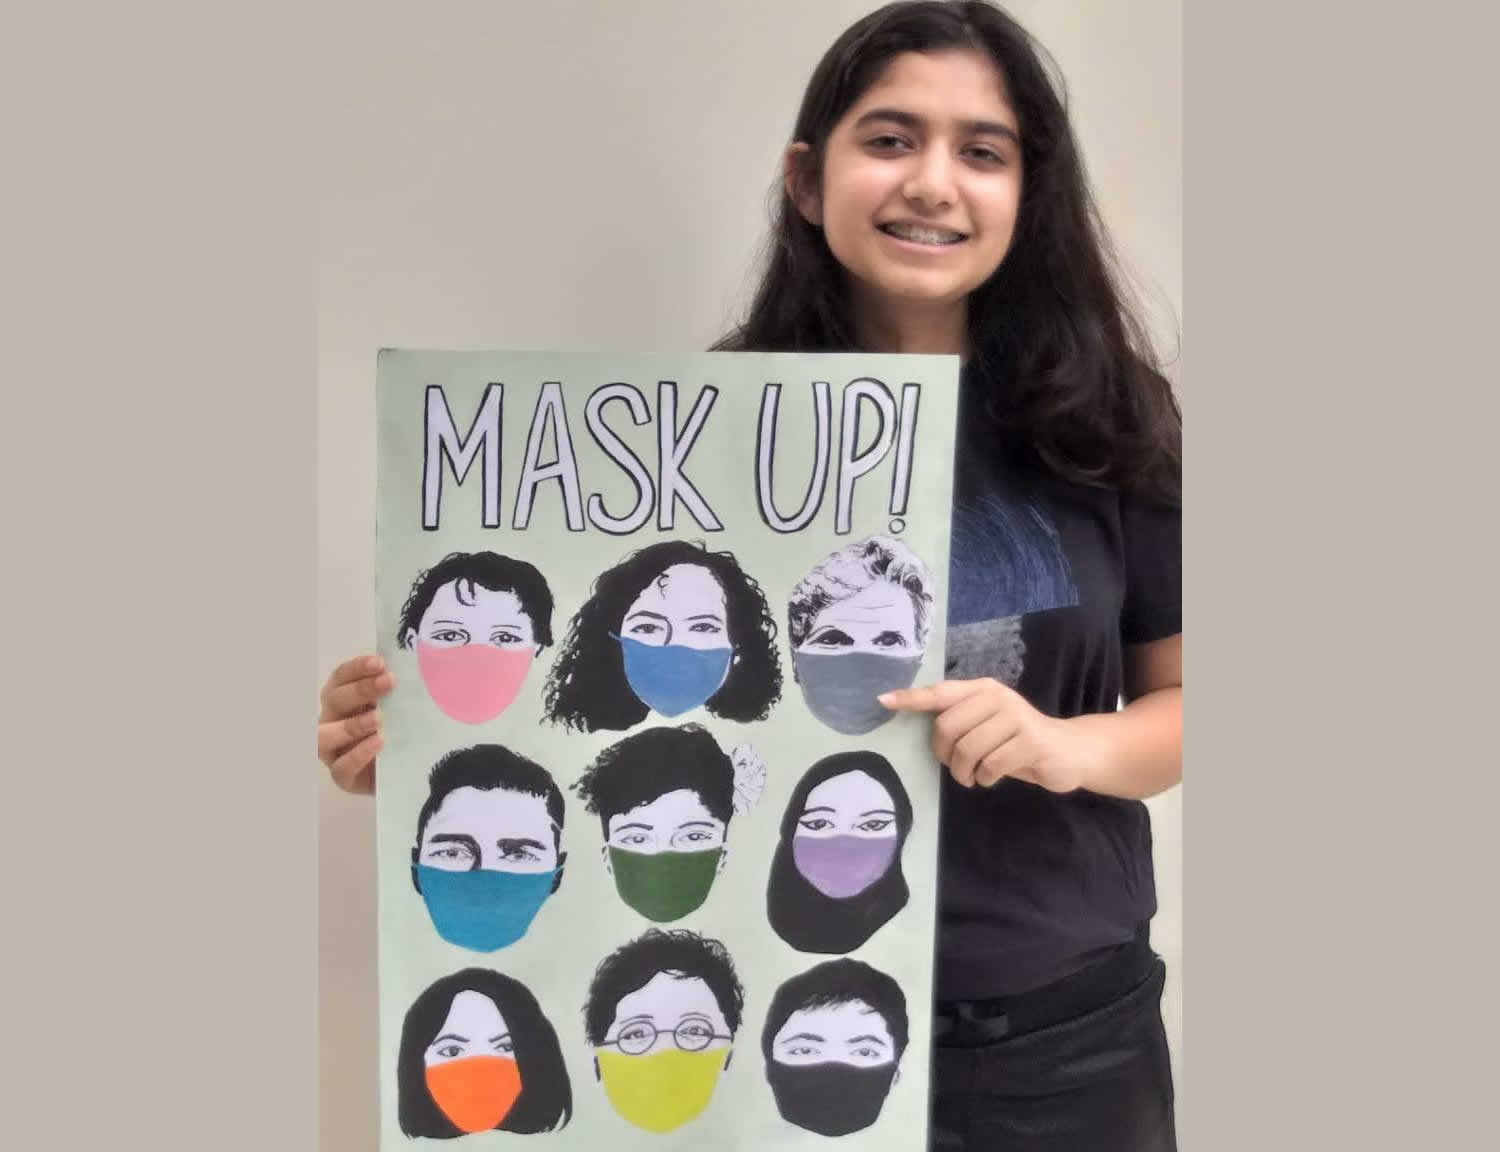 MASK UP!